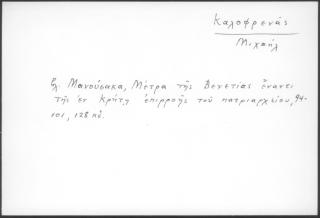 Καλοφρενάς
Μιχαήλ
βλ. Μανούσακα, Μέτρα τῆς Βενετίας ἔναντι
τῆς ἐν Κρήτῃ ἐπιρροῆς τοῦ πατριαρχείου, 94-
101, 128 κἑ.